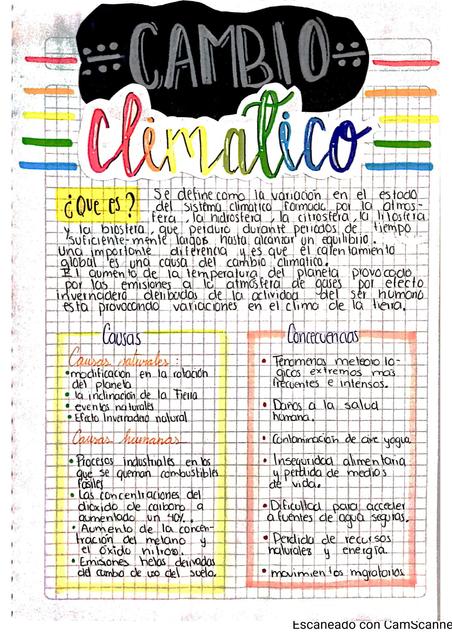 CAMBIO
Climatico
¿Que es?
Se define como la variación en el estado
del sistema climatico formado por la atmos-
fera, la hidrosfera, la citrosfera, la litosfera
y la biosfera, que perdura durante periodos de tiempo
suficiente-mente largos hasta alcanzar un equilibrio.
Una importante diferencia y es que el calentamiento
global es una causa del cambio climatico.
El aumento de la temperatura del planeta provocado
por las emisiones a la atmosfera de gases por efecto
invernadero deribadas de la actividad del ser humano
esta provocando variaciones en el clima de la tierra.
Causas
Causas naturales:
• modificación en la rotación
del planeta
• la inclinación de la Tierra
• eventos naturales
• Efecto Invernadero natural
Causas humanas
• Procesos industriales en los
que se queman combustibles
fosiles
• Las concentraciones del
dioxido de carbono a
aumentado un 40%.
• Aumento de la concen-
tración del metano y
el óxido nitroso.
• Emisiones netas derivadas
del cambio de uso del suelo.
Concecuencias
• Fenomenos meteoro lo-
gicos extremos mas
frecuentes e intensos.
• Daños a la salud
humana.
• Contaminación de aire y agua
• Inseguridad alimentaria
y perdida de medios
de vida.
• Dificultad para acceder
a fuentes de agua seguras.
• Perdida de recursos
naturales y energía.
• movimientos migratorios
Escaneado con CamScanne